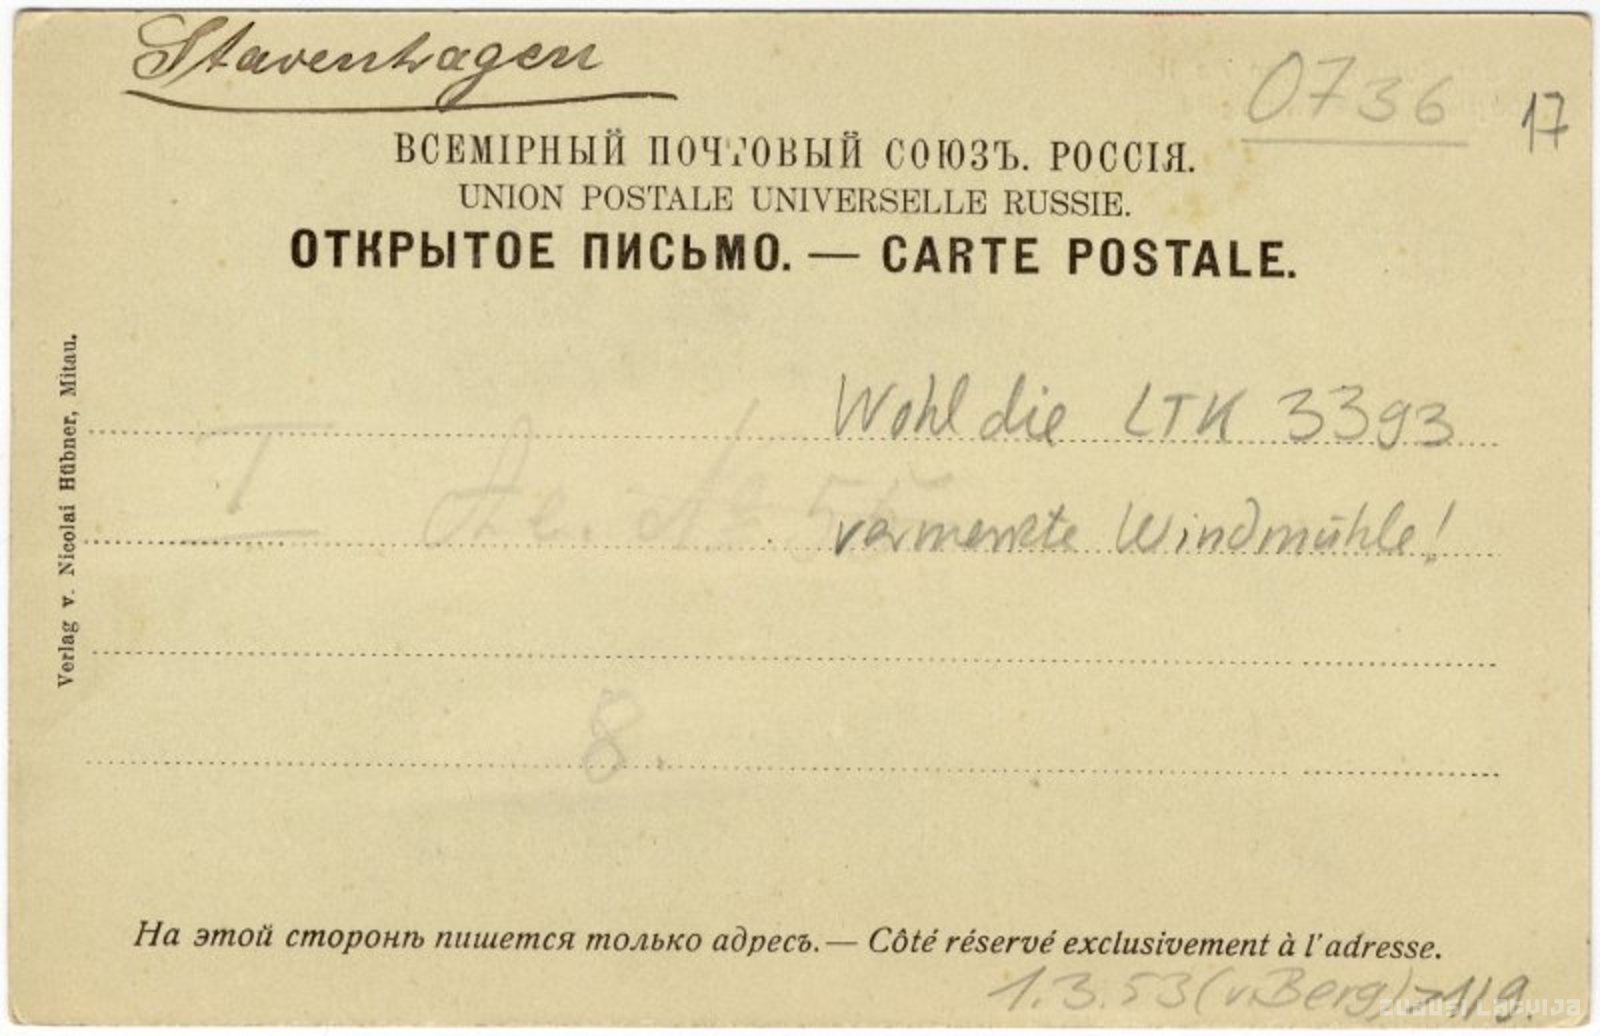 Stavenhagen
0736
17
ВСЕМІРНЫЙ ПОЧТОВЫЙ СОЮЗЪ. РОССІЯ.
UNION POSTALE UNIVERSELLE RUSSIE.
ОТКРЫТОЕ ПИСЬМО. — CARTE POSTALE.
Verlag v. Nicolai Hübner, Mitau.
Wohl die LTK 3393
vermerkte Windmühle!
8.
На этой сторонѣ пишется только адресъ. — Côté réservé exclusivement à l'adresse.
1.3.53 (v. Berg)
ZUDUSI LATVIJA